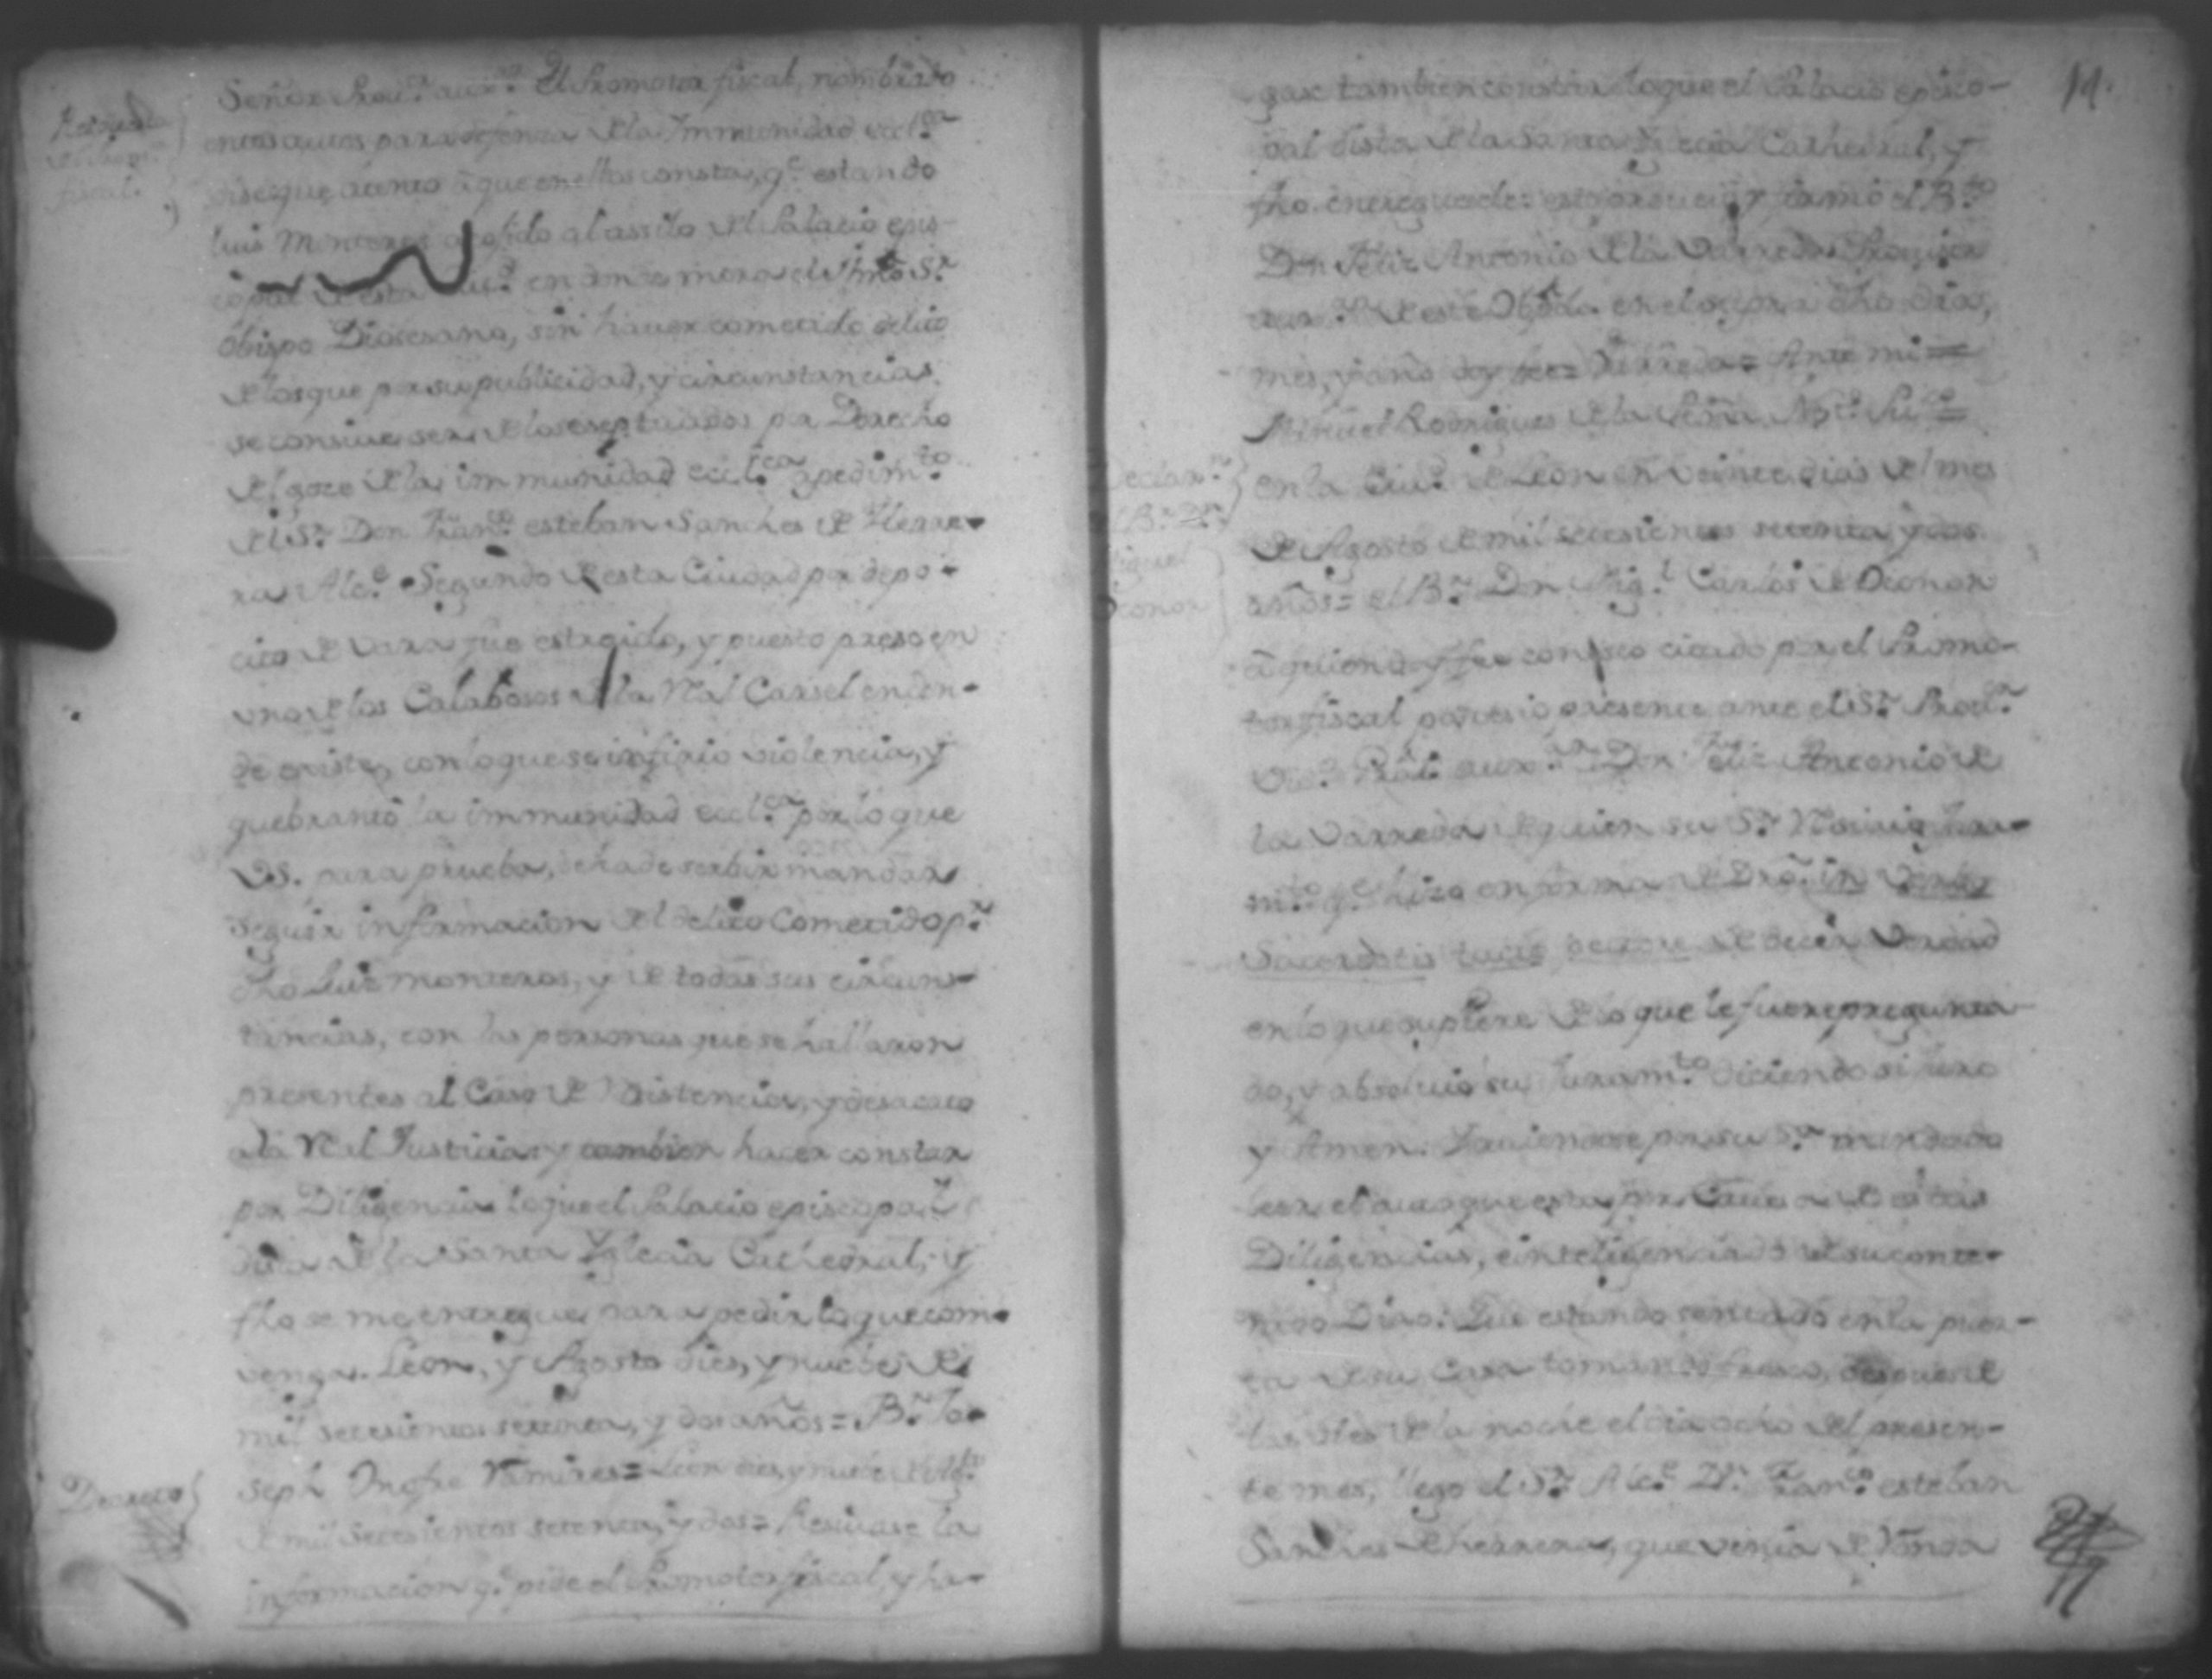 Respuesta
fiscal.
Señor Prov.or aux.ar El Promotor fiscal, nombrado
en estos autos para defensa de la Immunidad eccl.ca
dise que atento â que en ellos consta, q.e estando
Luis Monteros acojido al assilo del Palacio epis-
copal de esta Ciu.d en donde mora el Yllmô S.r
Obispo Diocesano, sin haver cometido delito
de los que por su publicidad, y circunstancias
se consiue ser de los eseptuados por Derecho
del goze de la immunidad eccl.ca a pedim.to
del S.r Don Fran.co esteban Sanches de Herre-
ra Alc.e Segundo de esta Ciudad por depo-
cito de vara fue estraido, y puesto preso en
uno de los Calabosos de la Rl Carsel en don-
de existe, con lo que se infirio violencia, y
quebrantó la immunidad eccl.ca por lo que
VS. para prueba, se ha de serbir mandar
seguir informacion del delito Cometido p.r
dho Luis Monteros, y de todas sus circuns-
tancias, con las personas que se hallaron
presentes al Caso de Resistencia, y desacato
a la Rl Justicia y tambien hacer constar
por Diligencia lo que el Palacio episcopal
dista de la Santa Yglecia Cathedral, y
fho se me entregue para pedir lo que com-
venga. Leon, y Agosto dies, y nuebe de
mil setesientos setenta, y dos años = B.r Jo-
seph Onofre Ramires = Leon dies, y nuebe de Ag.to
Decreto
de mil setesientos setenta, y dos = Resivase la
informacion q.e pide el Promotor fiscal, y ha-
11.
gase tambien constar lo que el Palacio episco-
pal dista de la Santa Yglecia Cathedral, y
fho entreguesele: esto proveyó y firmó el B.r
Don Felix Antonio de la Varreda Provisor
aux.ar de este Obpdo. en el supra dho dias,
mes, y año doy fee = Varreda = Ante mi =
Miguel Rodrigues de la Peña Not.o Pu.co =
Declar.n
del B.r D.n
Miguel
Oconor
En la Ciu.d de Leon en veinte dias del mes
de Agosto de mil setesientos setenta, y dos
años = el B.r Don Mig.l Carlos de Oconor
â quien doy fee conosco citado por el Promo-
tor fiscal paresio presente ante el S.r Prov.or
Vic.o Gral. aux.ar Don Felix Antonio de
la Varreda de quien su S.ria Resivio Jura-
m.to q.e hizo en forma de Drô. in Verbo
Sacerdotis tacto pectore de decir Verdad
en lo que supiere de lo que le fuere pregunta-
do, y absolvió su Juram.to diciendo si Juro
y Amen. Haviendose por su S.ria mandado
leer el auto que esta por Cavesa de estas
Diligencias, e inteligenciado de su conte-
nido Dixo: Que estando sentado en la puer-
ta de su Casa tomando fresco, despues de
las dies de la noche el dia ocho del presen-
te mes, llego el S.r Alc.e D.n Fran.co esteban
Sanches de herrera, que venia de Ronda